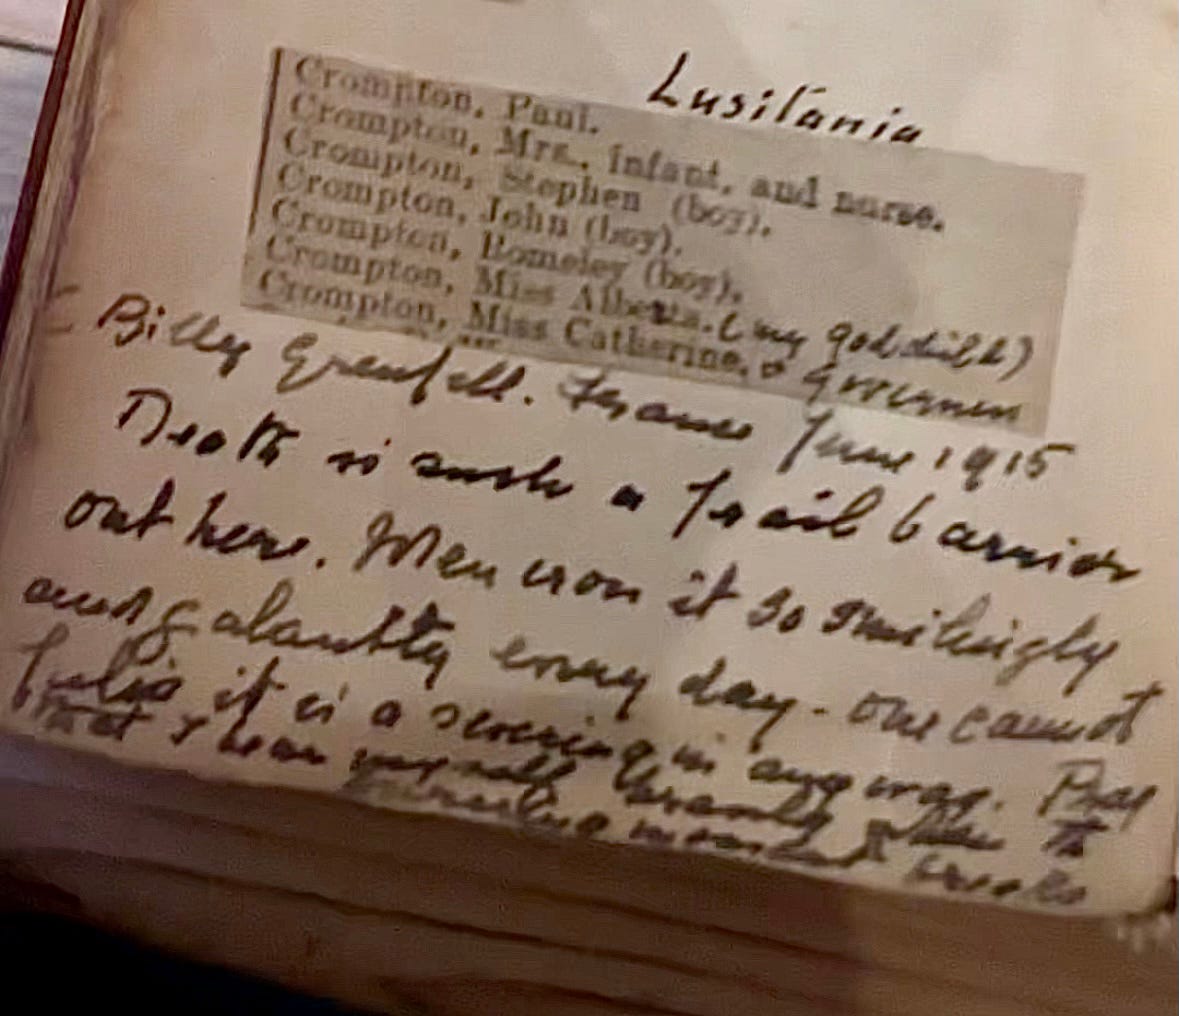 Lusitania
Crompton, Paul.
Crompton, Mrs., infant, and nurse.
Crompton, Stephen (boy).
Crompton, John (boy).
Crompton, Romeley (boy).
Crompton, Miss Alberta. (my godchild)
Crompton, Miss Catherine. & governess
Billy Grenfell. France June 1915
Death is such a frail barrier
out here. Men cross it so smilingly
and galantly every day - one cannot
feel it is a severing in any way. Pray
that I bear myself bravely when the
moment breaks